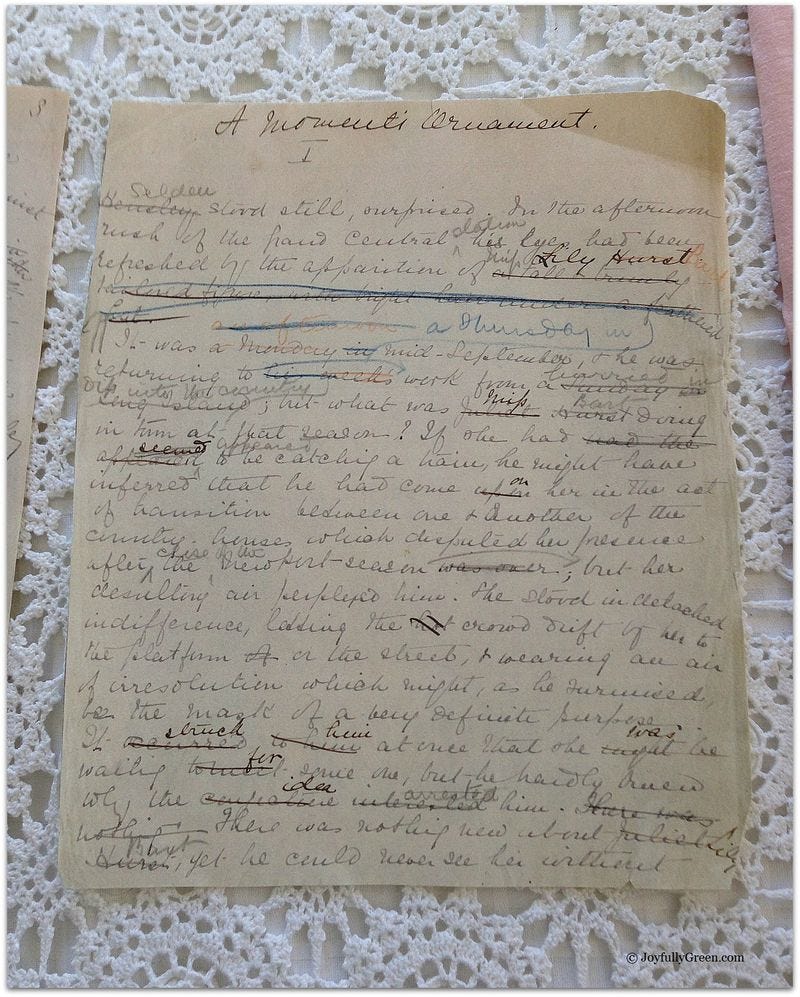 A Moment's Ornament.
I
Selden
Hensley stood still, surprised. In the afternoon
station
rush of the Grand Central his eyes had been
Miss Lily Hurst Bart
refreshed by the apparition of a tall trimly
tailored figure, with bright hair under a
hat.
afternoon a Thursday in
It was a Monday in mid-September, & he was
hurried
returning to his week's work from a Sunday in
dip into the country
Long Island; but what was Juliet Hurst doing
Miss Bart
in town at that season? If she had had the
seemed appeared
to be catching a train, he might have
inferred that he had come upon her in the act
on
of transition between one & another of the
country-houses which disputed her presence
close of the
after the Newport season was over; but her
desultory air perplexed him. She stood in detached
indifference, letting the hot crowd drift by her to
the platform or the street, & wearing an air
of irresolution which might, as he surmised,
be the mask of a very definite purpose.
struck him was
It occurred to him at once that she might be
for
waiting to meet some one, but he hardly knew
idea arrested
why the interested him. There was
nothing There was nothing new about Juliet Lily
Bart
Hurst, yet he could never see her without
© JoyfullyGreen.com